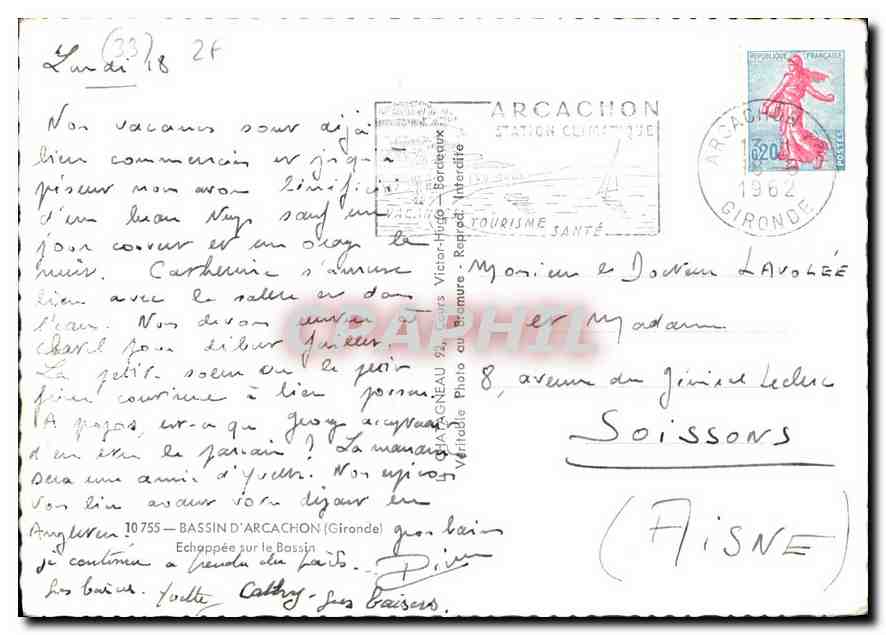 (33) 2F
Lundi 18
Nos vacances sont déjà
bien commencées et jusqu'à
présent nous avons bénéficié
d'un beau temps sauf un
jour couvert et un orage la
nuit. Catherine s'amuse
bien avec le sable et dans
l'eau. Nous devons rentrer à
pour début Juillet.
La petite soeur ou le petit
frère continue à bien pousser.
A propos, est-ce que Georges
d'être le parrain ? La marraine
sera une amie d'Yvette. Nous espérons
vous bien avant votre départ en
Angleterre. gros baisers
je continue à prendre du poids...
Gros baisers. Yvette Cathy gros baisers.
10 755 — BASSIN D'ARCACHON (Gironde)
Echappée sur le Bassin
CHATAGNEAU 92, Cours Victor-Hugo - Bordeaux
Véritable Photo au Bromure - Reprod. Interdite
ARCACHON
STATION CLIMATIQUE
VACANCES TOURISME SANTÉ
ARCACHON
1962
GIRONDE
REPUBLIQUE FRANÇAISE
0,20
POSTES
Monsieur le Docteur LAVOLÉE
et Madame
8, avenue du Général Leclerc
SOISSONS
(AISNE)
CPARPHIL